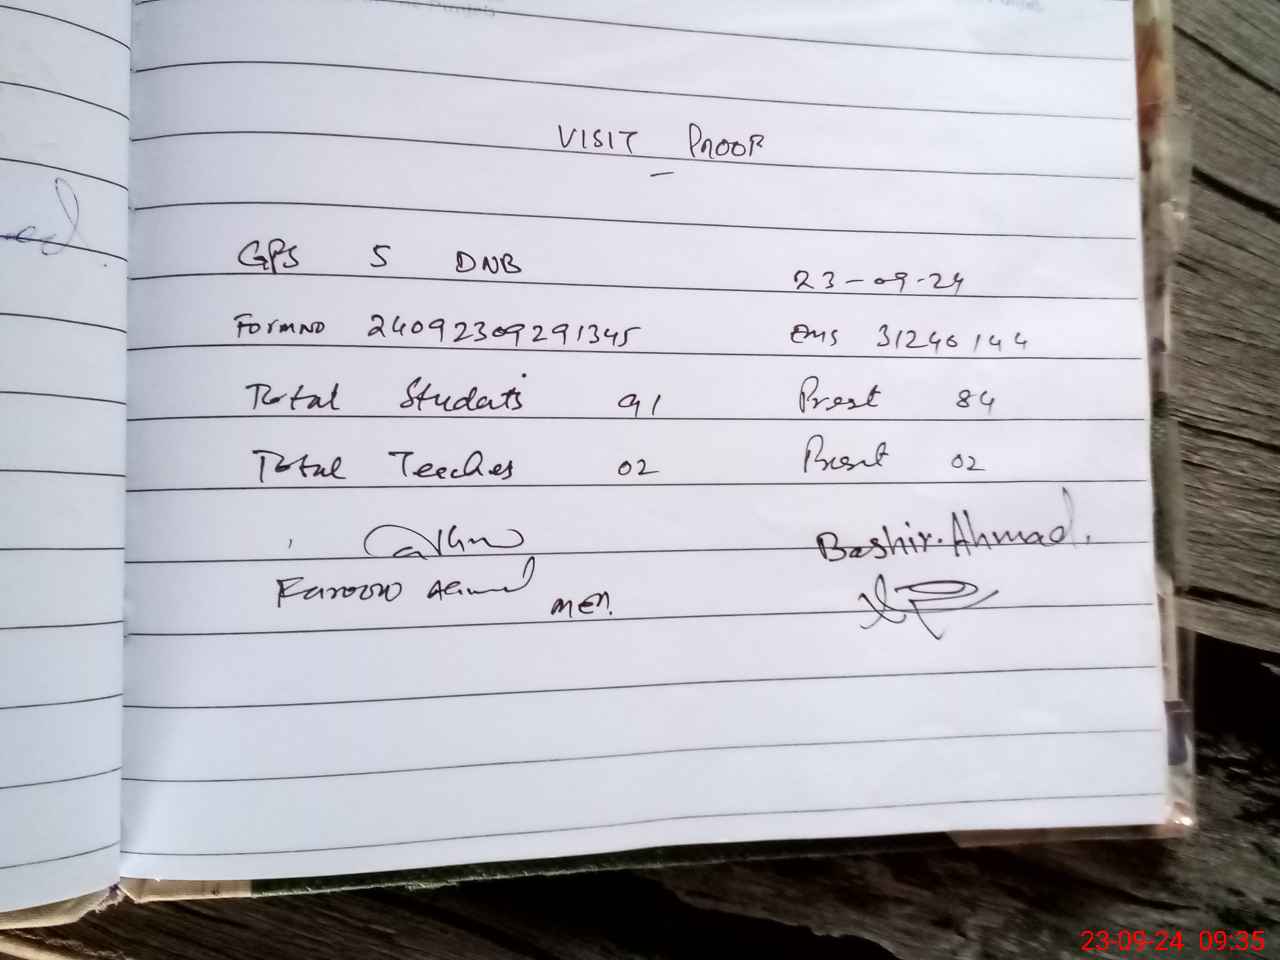 VISIT PROOF
GPS 5 DNB 23-09-24
Form NO 24092309291345 EMS 31240144
Total Students 91 Present 84
Total Teachers 02 Present 02
Bashir. Ahmad.
Farooq Ahmed
MEA.
23-09-24 09:35